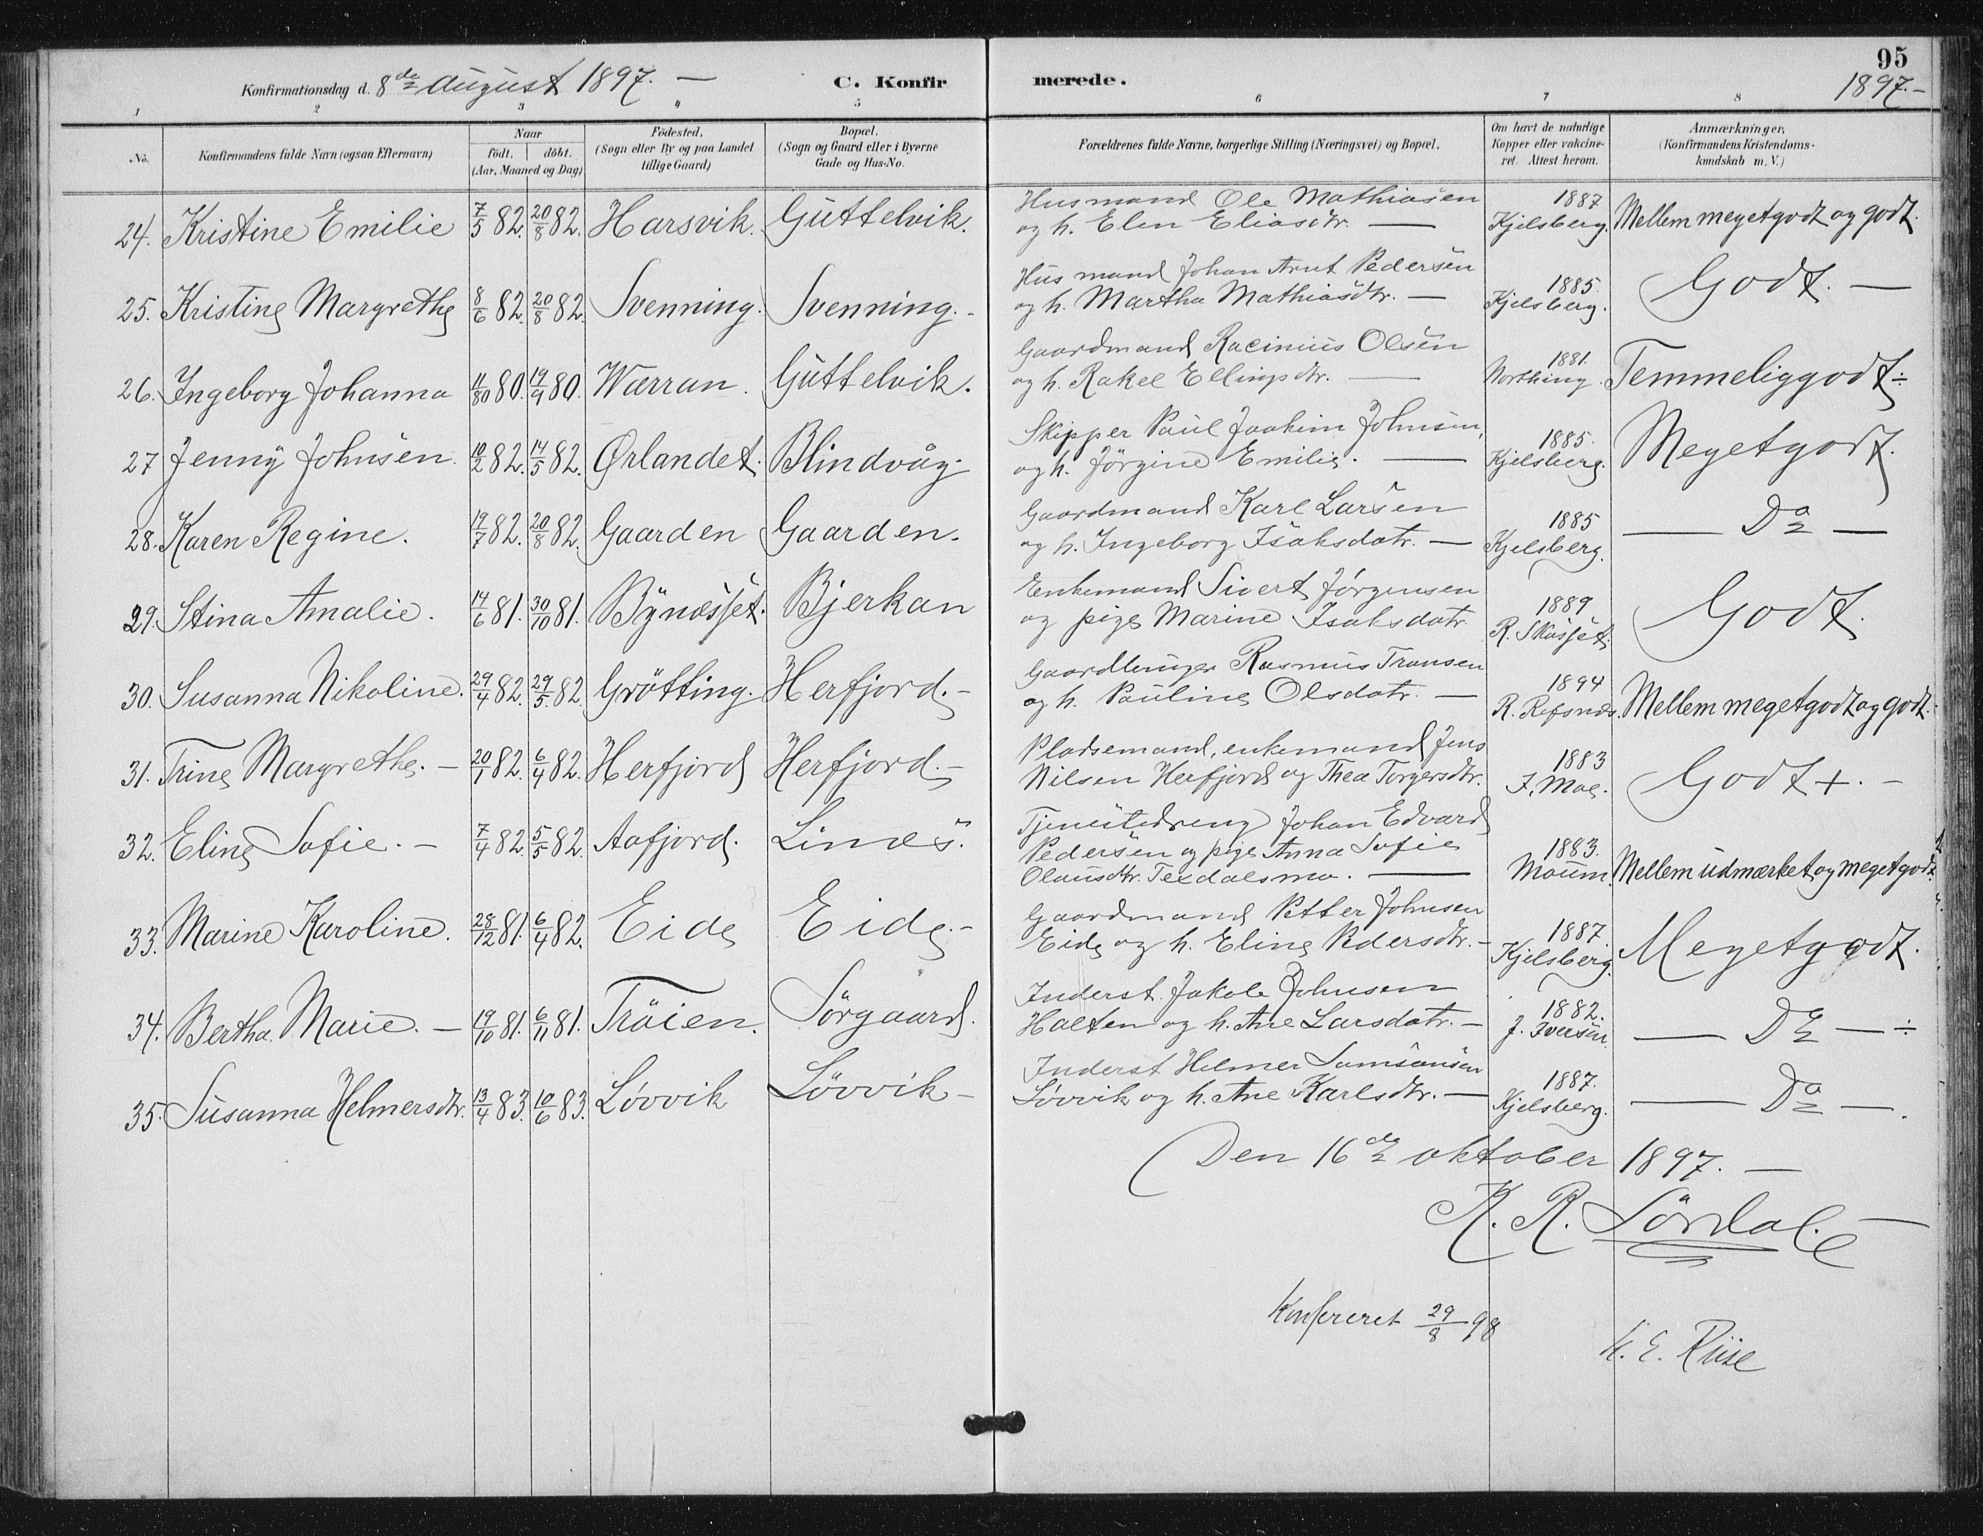 95
Konfirmationsdag d. 8de august 1897. — C. Konfirmerede. 1897. —
1 2 3 4 5 6 7 8
No. Konfirmandens fulde Navn (ogsaa Efternavn) Naar födt. döbt. (Aar, Maaned og Dag) Födested. (Sogn eller By og paa Landet tillige Gaard) Bopæl. (Sogn og Gaard eller i Byerne Gade og Hus-No. Forældrenes fulde Navne, borgerlige Stilling (Næringsvei) og Bopæl. Om havt de naturlige Kopper eller vakcineret. Attest herom. Anmærkninger. (Konfirmandens Kristendomskundskab m. V.)
24. Kristine Emilie 7/5 82. 20/8 82. Harsvik. Guttelvik. Husmand Ole Mathiasen og h. Elen Eliasdtr. — 1887 Kjelsberg. Mellem megetgodt og godt.
25. Kristine Margrethe 8/6 82. 20/8 82. Svenning. Svenning. - Husmand Johan Arnt Pedersen og h. Martha Mathiasdtr. — 1885. Kjelsberg. Godt. —
26. Ingeborg Johanna 11/80 80. 19/4 80. Wærran. Guttelvik. Gaardmand Racinius Olsen og h. Rakel Ellingsdtr. — 1881. Northing. Temmeliggodt ÷
27 Jenny Johnsen. 10/2 82. 14/5 82. Ørlandet. Blindvåg. Skipper Paul Joakim Johnsen, og h. Jörgine Emilie. — 1885. Kjelsberg. Megetgodt.
28. Karen Regine. 19/7 82. 20/8 82. Gaarden Gaarden. Gaardmand Karl Larsen og h. Ingeborg Isaksdatr. — 1885 Kjelsberg. — Do —
29. Stina Amalie. 14/6 81. 30/10 81. Bynæsset. Bjerkan Enkemand Sivert Jørgensen og pige Marine Isaksdatr. 1889 R. Skasset. Godt.
30. Susanna Nikoline. 29/4 82. 29/5 82. Grötting. Herfjord. - Gaardbruger Rasmus Transen og h. Pauline Olsdatr. — 1894 R. Refsnæs. Mellem megetgodt og godt.
31. Trine Margrethe. — 20/1 82. 6/4 82. Herfjord Herfjord. - Pladsemand, enkemand Jens Nilsen Herfjord og Thea Torgersdtr. 1883 I. Moe. Godt +. -
32. Eline Sofie. - 7/4 82. 5/5 82. Aafjord. Linæs. Tjenestedreng Johan Edvard Pedersen og pige Anna Sofie Olausdtr. Texdalsmo. — 1883. Moum. Mellem udmærket og megetgodt.
33. Marine Karoline. 28/12 81. 6/4 82. Eide Eide. - Gaardmand Petter Johnsen Eide og h. Eline Pedersdtr. — 1887. Kjelsberg. Megetgodt.
34. Bertha Marie. — 19/10 81. 6/11 81. Tröien. Sörgaard. Inderst. Jakob Johnsen Halten og h. Ane Larsdatr. — 1882. J. Iversen. — Do — ÷
35. Susanna Helmersdtr. 13/4 83. 10/6 83. Lövvik Lövvik - Inderst Helmer Samsonsen Lövvik og h. Ane Karlsdtr. — 1887. Kjelsberg. — Do —.
Den 16de oktober 1897. —
K. R. Sördal. —
Konfereret 29/8 98
K. E. Riise